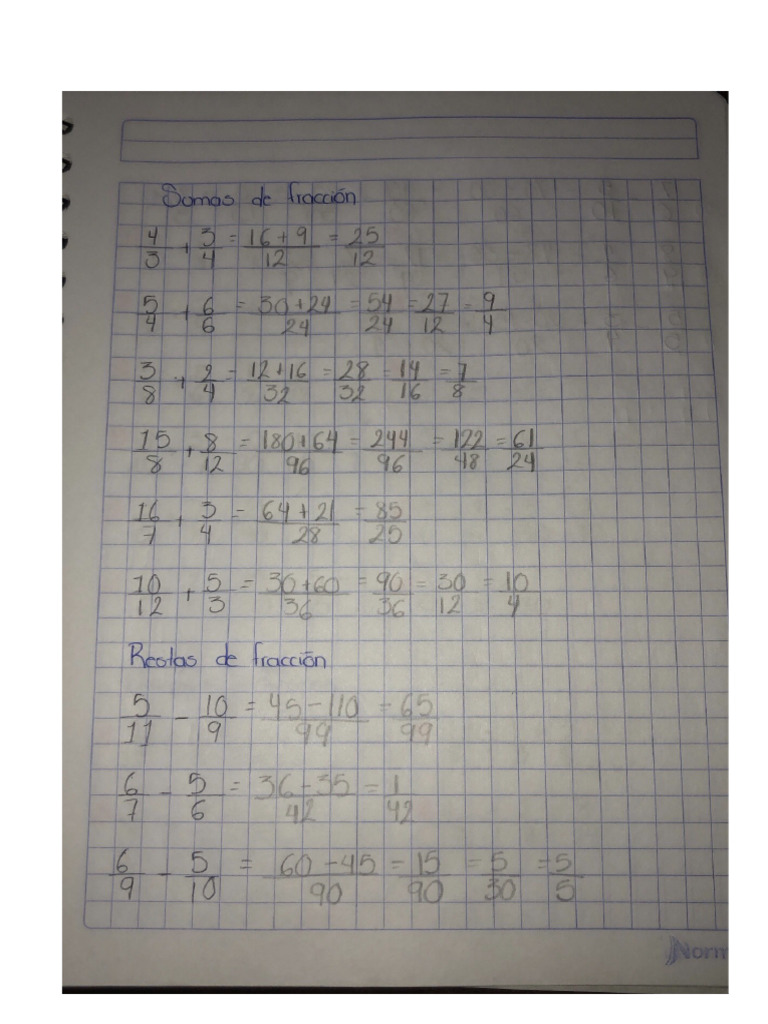 Sumas de fracción
4/3 + 3/4 = 16+9/12 = 25/12
5/4 + 6/6 = 30+24/24 = 54/24 = 27/12 = 9/4
3/8 + 2/4 = 12+16/32 = 28/32 = 14/16 = 7/8
15/8 + 8/12 = 180+64/96 = 244/96 = 122/48 = 61/24
16/7 + 3/4 = 64+21/28 = 85/25
10/12 + 5/3 = 30+60/36 = 90/36 = 30/12 = 10/4
Restas de fracción
5/11 - 10/9 = 45-110/99 = 65/99
6/7 - 5/6 = 36-35/42 = 1/42
6/9 - 5/10 = 60-45/90 = 15/90 = 5/30 = 5/5
Norm